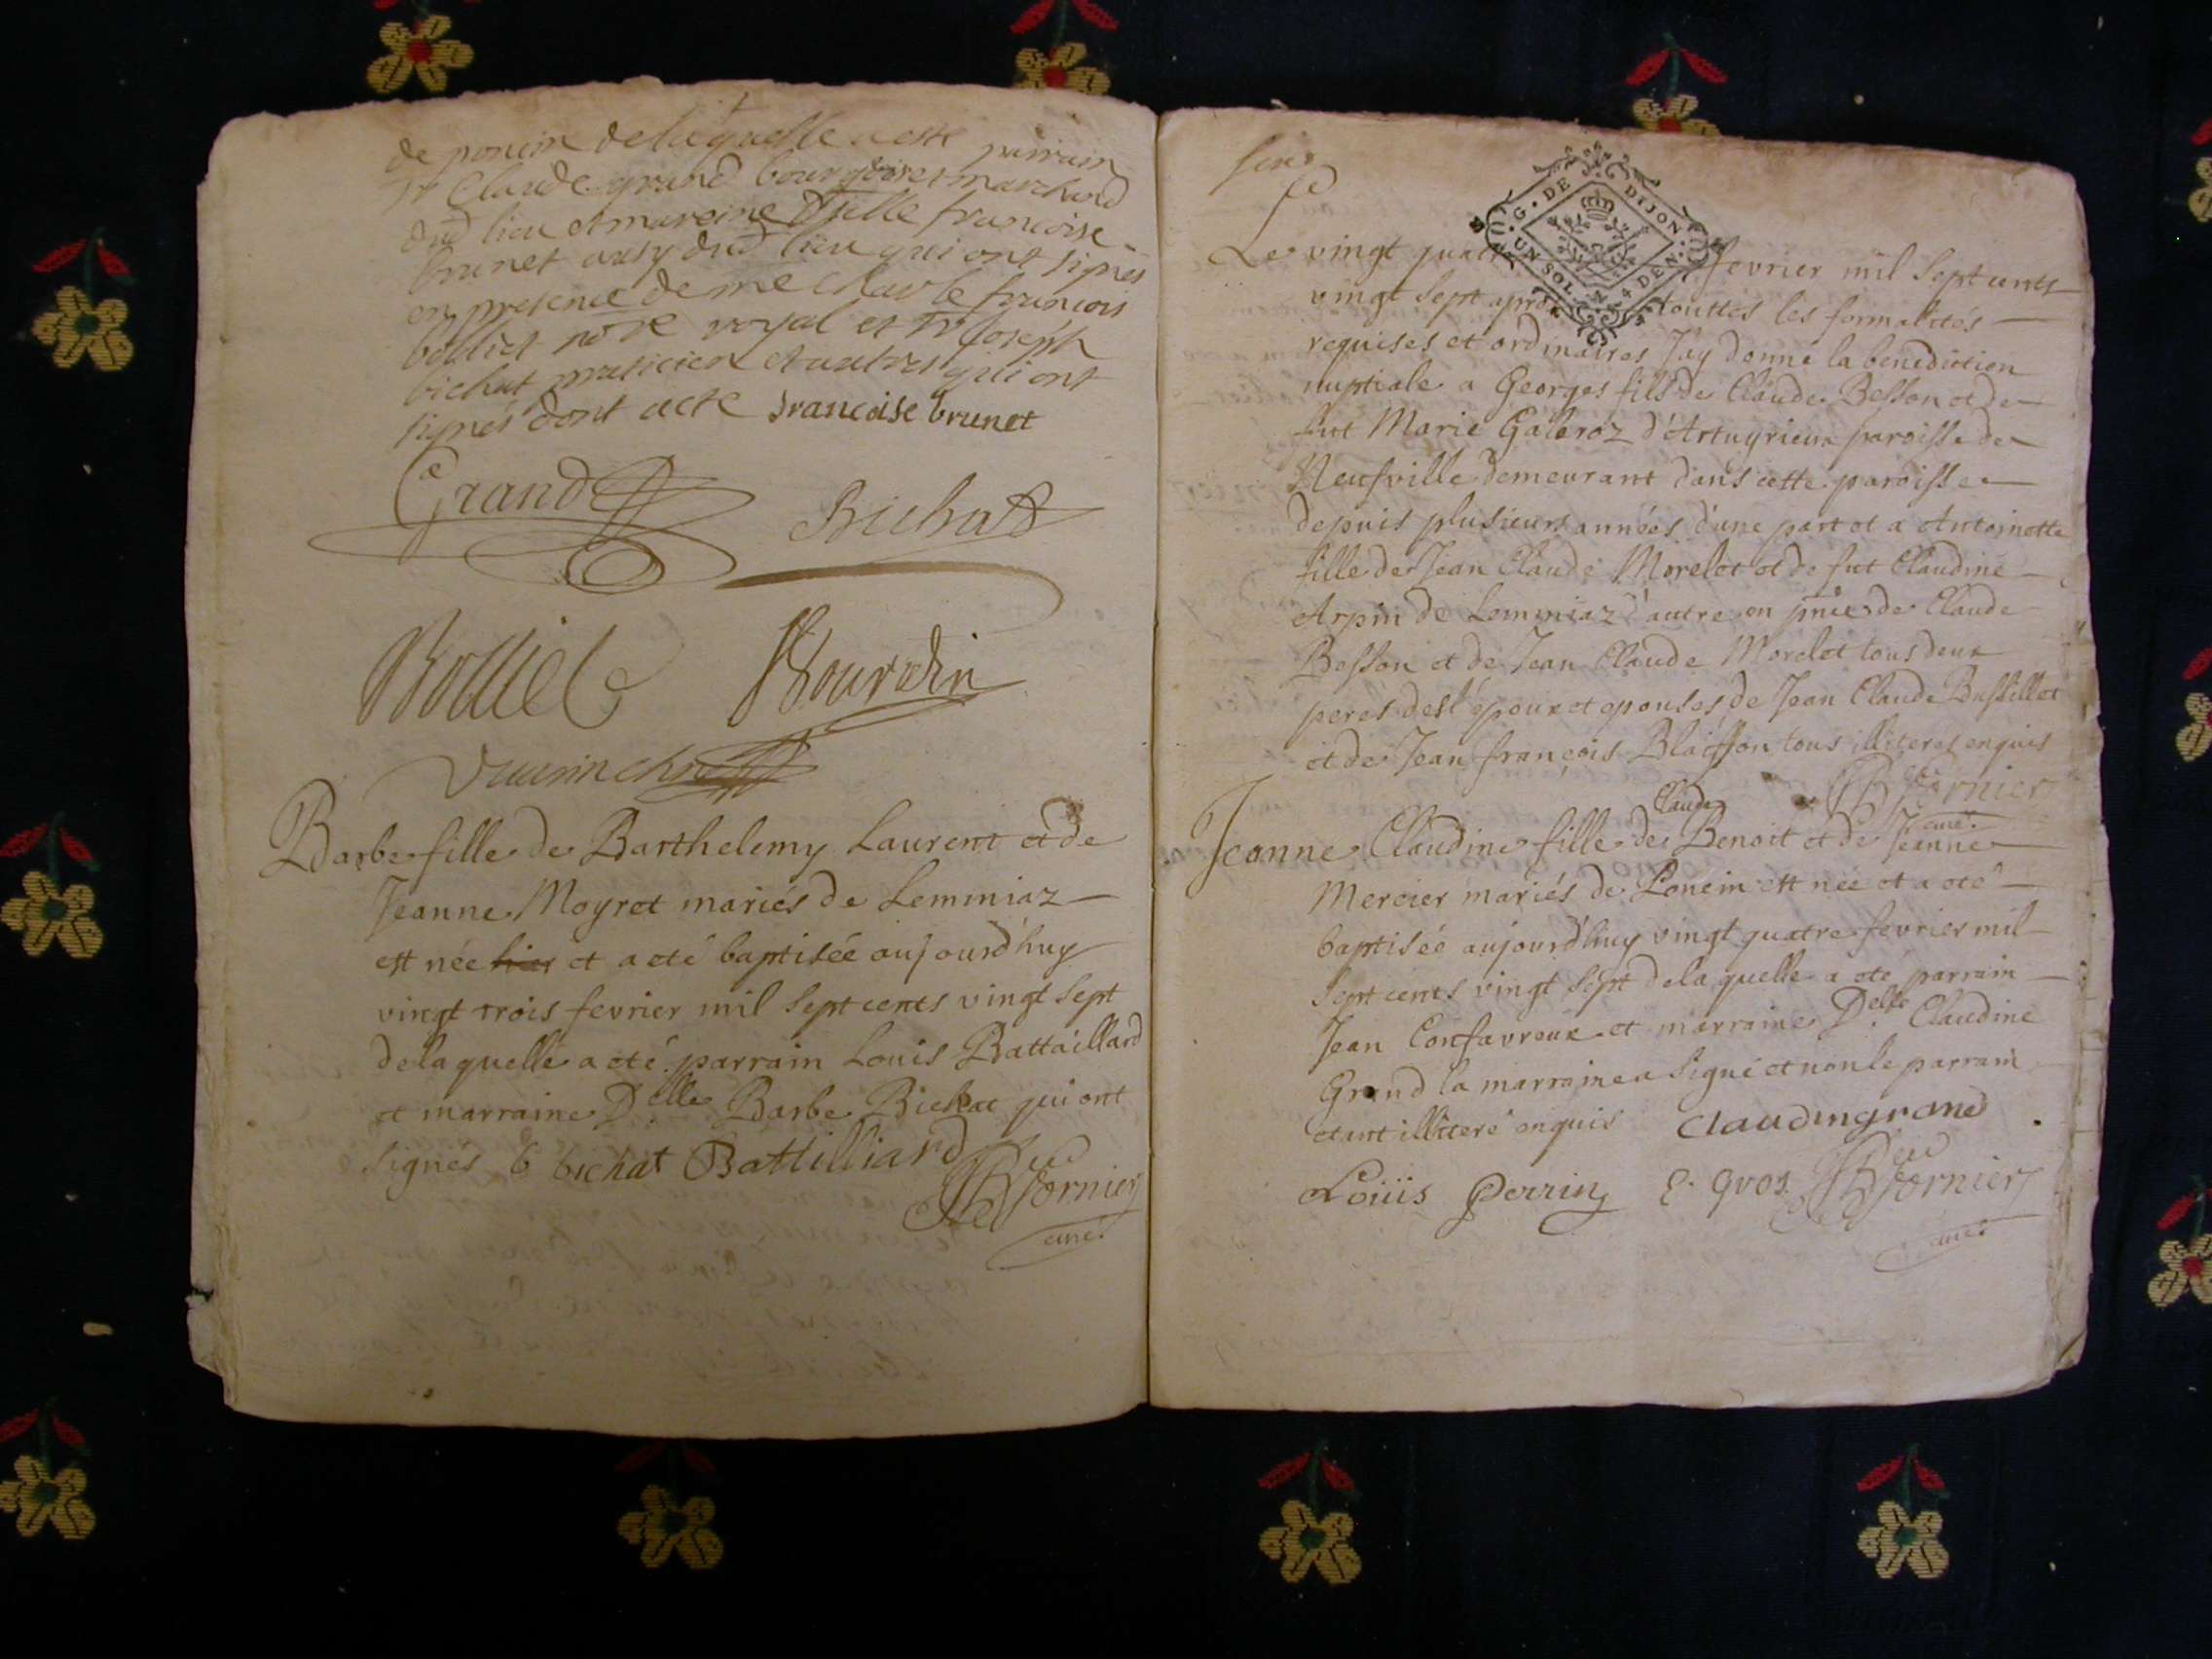 de poncin de laquelle a esté parrain
Sr Claude grand bourgoire et marchand
dud lieu et mareine dlle francoise
brunet ausy dud lieu qui ont signés
en presence de me charle francois
bolliet nore royal et sr Joseph
bichat praticien et autres qui ont
signés dont acte francoise brunet
Grand Bichatt
Bolliet Gourdin
Barbe fille de Barthelemy Laurent et de
Jeanne Moyret mariés de Lemmiaz
est née hier et a eté baptisée aujourd'huy
vingt trois fevrier mil sept cents vingt sept
de laquelle a eté parrain Louis Battaillard
et marraine Delle Barbe Bichat qui ont
signés b bichat Battilliard
Fornier
curé
G. DE DIJON
UN SOL. 4 DEN.
Le vingt quatre fevrier mil sept cents
vingt sept après touttes les formalités
requises et ordinaires J'ay donné la benediction
nuptiale a Georges fils de Claude Besson et de
fut Marie Galeroz d'Artuyrieux paroisse de
Neufville demeurant dans cette paroisse
depuis plusieurs années d'une part et a Antoinette
fille de Jean Claude Morelet et de fut Claudine
Arpin de Lemmiaz d'autre en pnce de Claude
Besson et de Jean Claude Morelet tous deux
peres des epoux et epouses de Jean Claude Bussillet
et de Jean françois Blaisson tous illiteres enquis
Fornier
curé
Jeanne Claudine fille de Claude Benoit et de Jeanne
Mercier mariés de Poncin est née et a eté
baptisée aujourd'huy vingt quatre fevrier mil
sept cents vingt sept de laquelle a eté parrain
Jean Confavreux et marraine Delle Claudine
Grand la marraine a signé et non le parrain
etant illiteré enquis Claudin grand
Loüis Perrin E. gros Fornier
curé